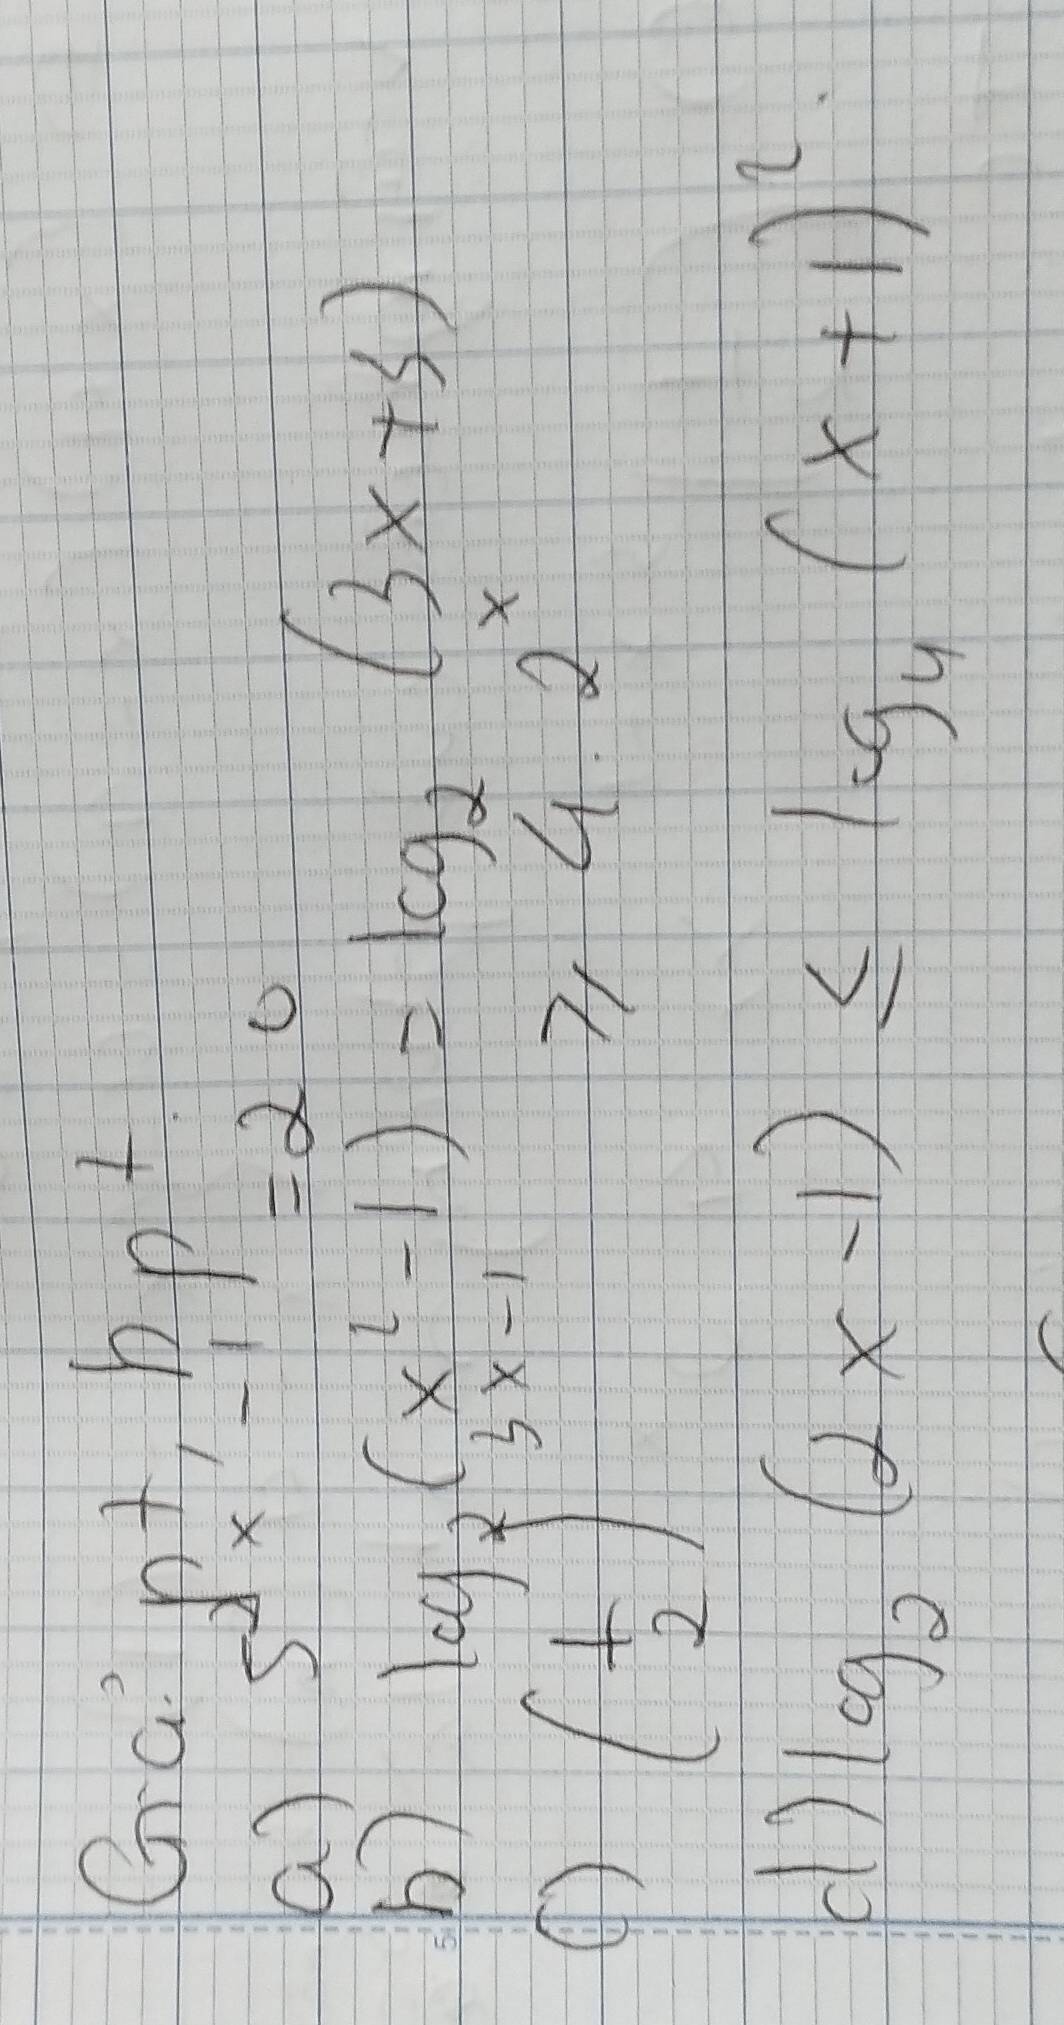 Giải pt, bpt
a) 5^{2x-1} = 20
b) log₂(x²-1) = log₂(3x+3)
c) (1/2)^{3x-1} ⩾ 4.2^x
d) log₂(2x-1) ≤ log₄(x+1)².